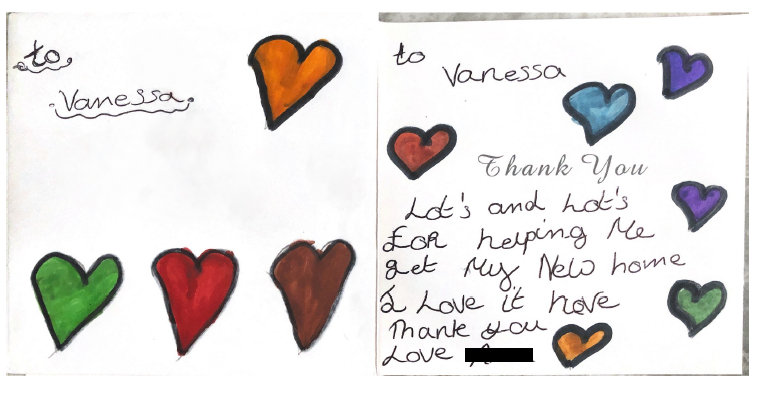 to
Vanessa
to
Vanessa
Thank You
Lot's and Lot's
FOR helping Me
get My New home
I Love it hove
Thank you
Love